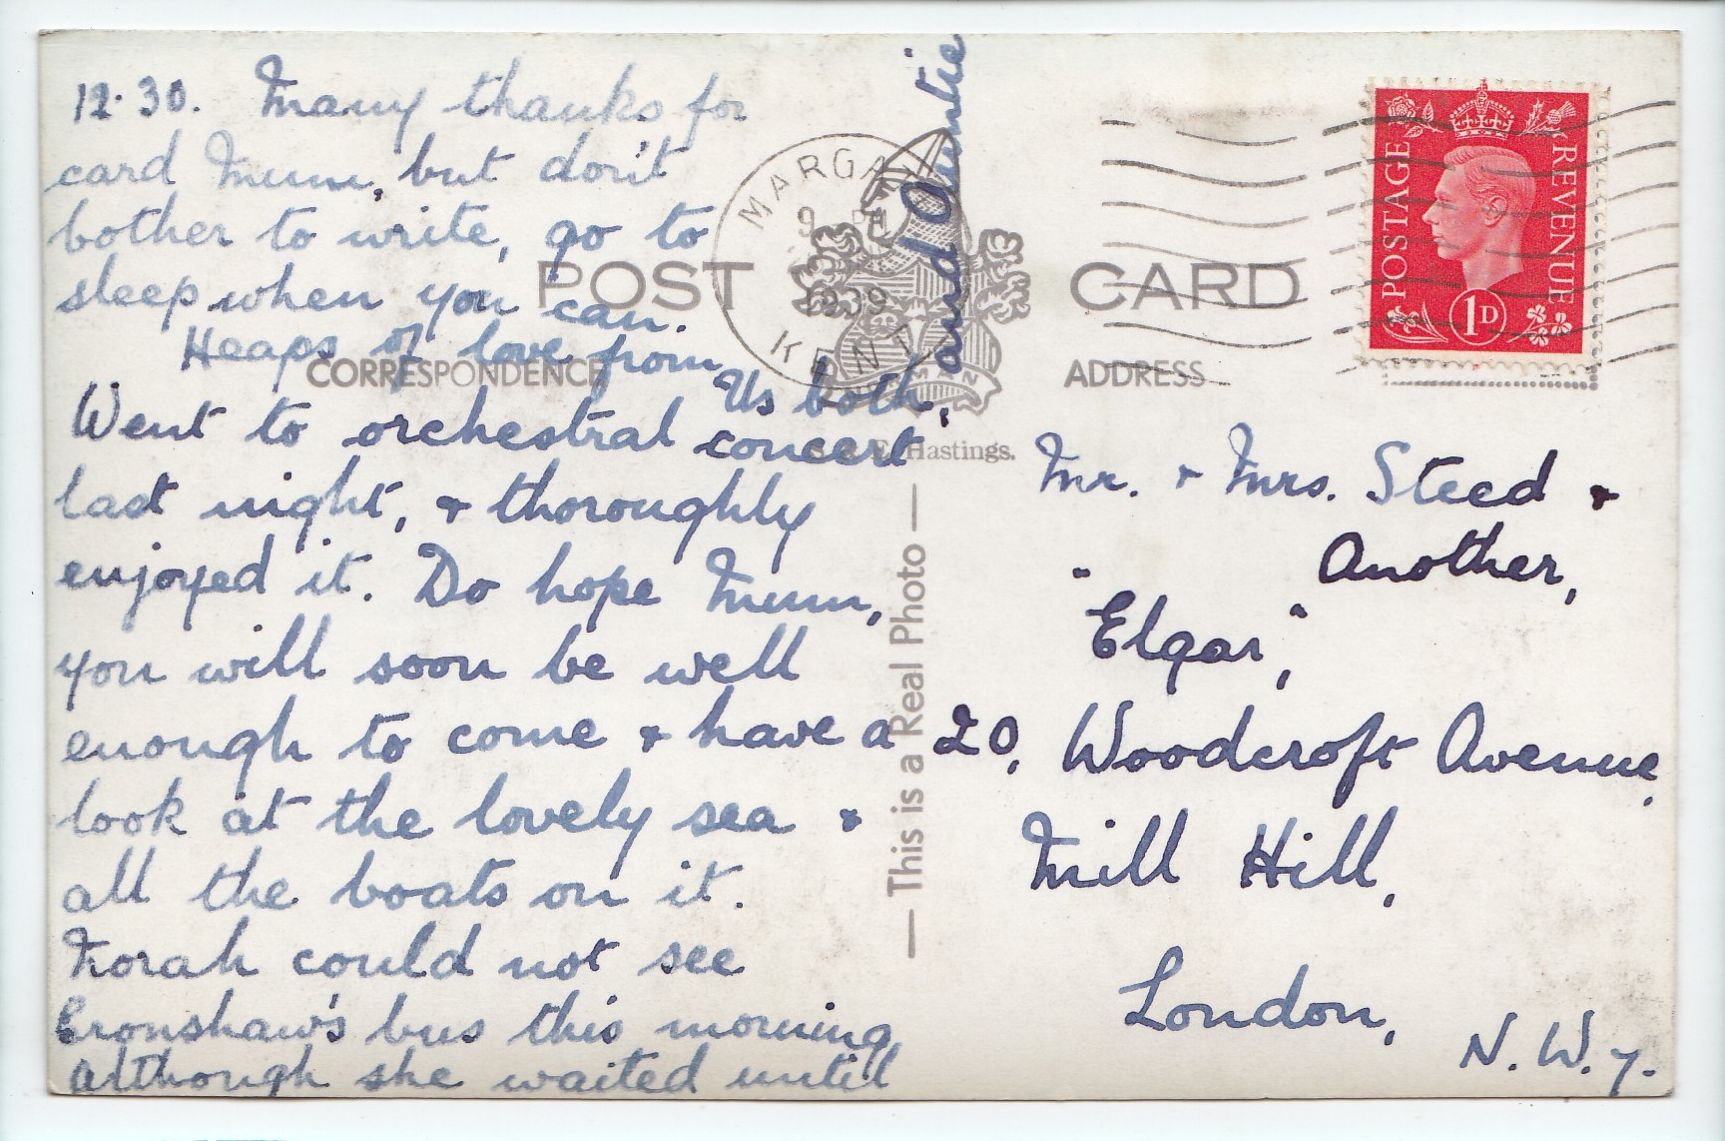 12.30. Many thanks for
card Mum, but don't
bother to write, go to
sleep when you can.
Heaps of love from
Us both,
and Auntie
Went to orchestral concert
last night, & thoroughly
enjoyed it. Do hope Mum,
you will soon be well
enough to come & have a
look at the lovely sea &
all the boats on it.
Norah could not see
Cronshaw's bus this morning
although she waited until
POST CARD
CORRESPONDENCE
ADDRESS
Hastings.
— This is a Real Photo —
MARGA
9
1939
KENT
POSTAGE
REVENUE
1D
Mr. & Mrs. Steed &
Another,
"Elgar",
20, Woodcroft Avenue,
Mill Hill,
London,
N.W.7.